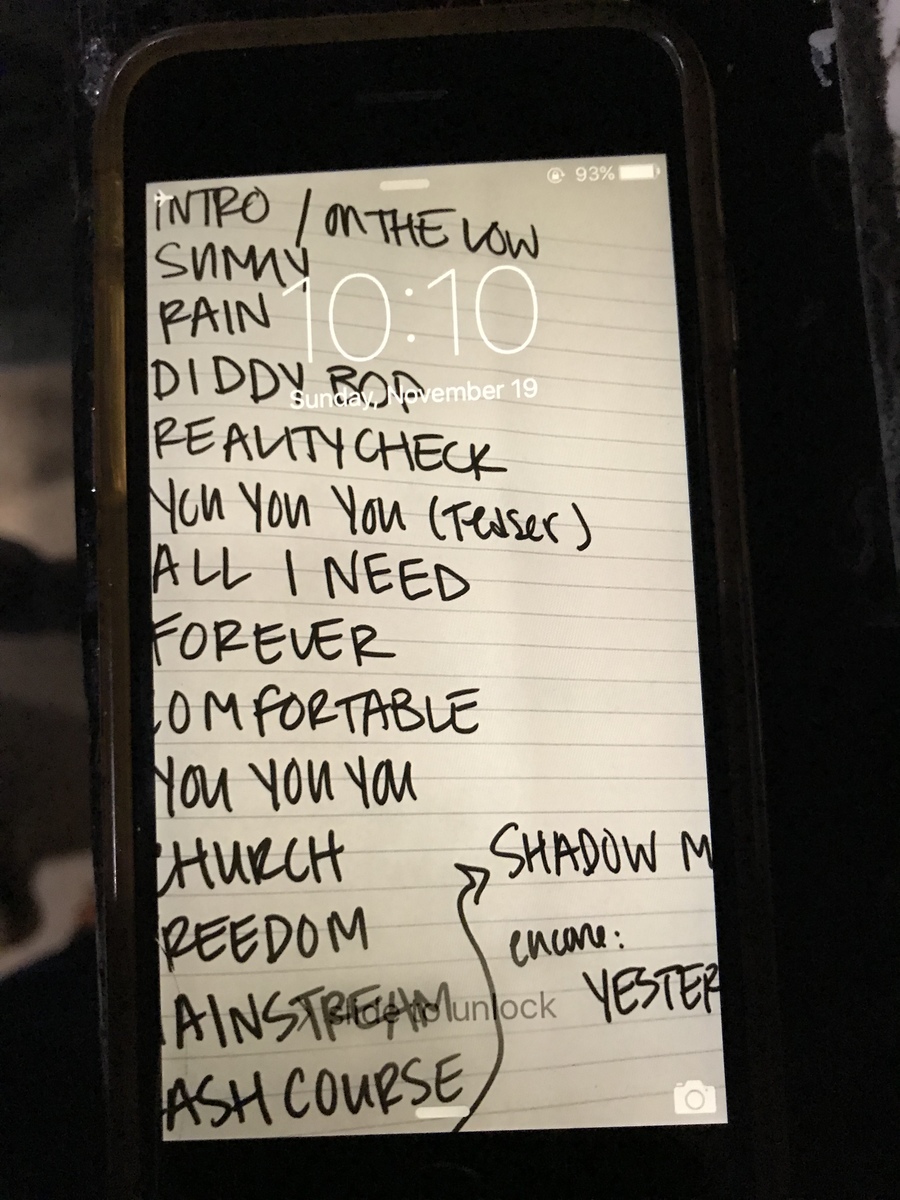 93%
INTRO / ON THE LOW
SUNNY
10:10
RAIN
DIDDY BOP
Sunday, November 19
REALITY CHECK
YOU YOU YOU (Teaser)
ALL I NEED
FOREVER
COMFORTABLE
YOU YOU YOU
CHURCH
SHADOW M
REEDOM
encore:
YESTER
AINSTREAM
slide to unlock
ASH COURSE